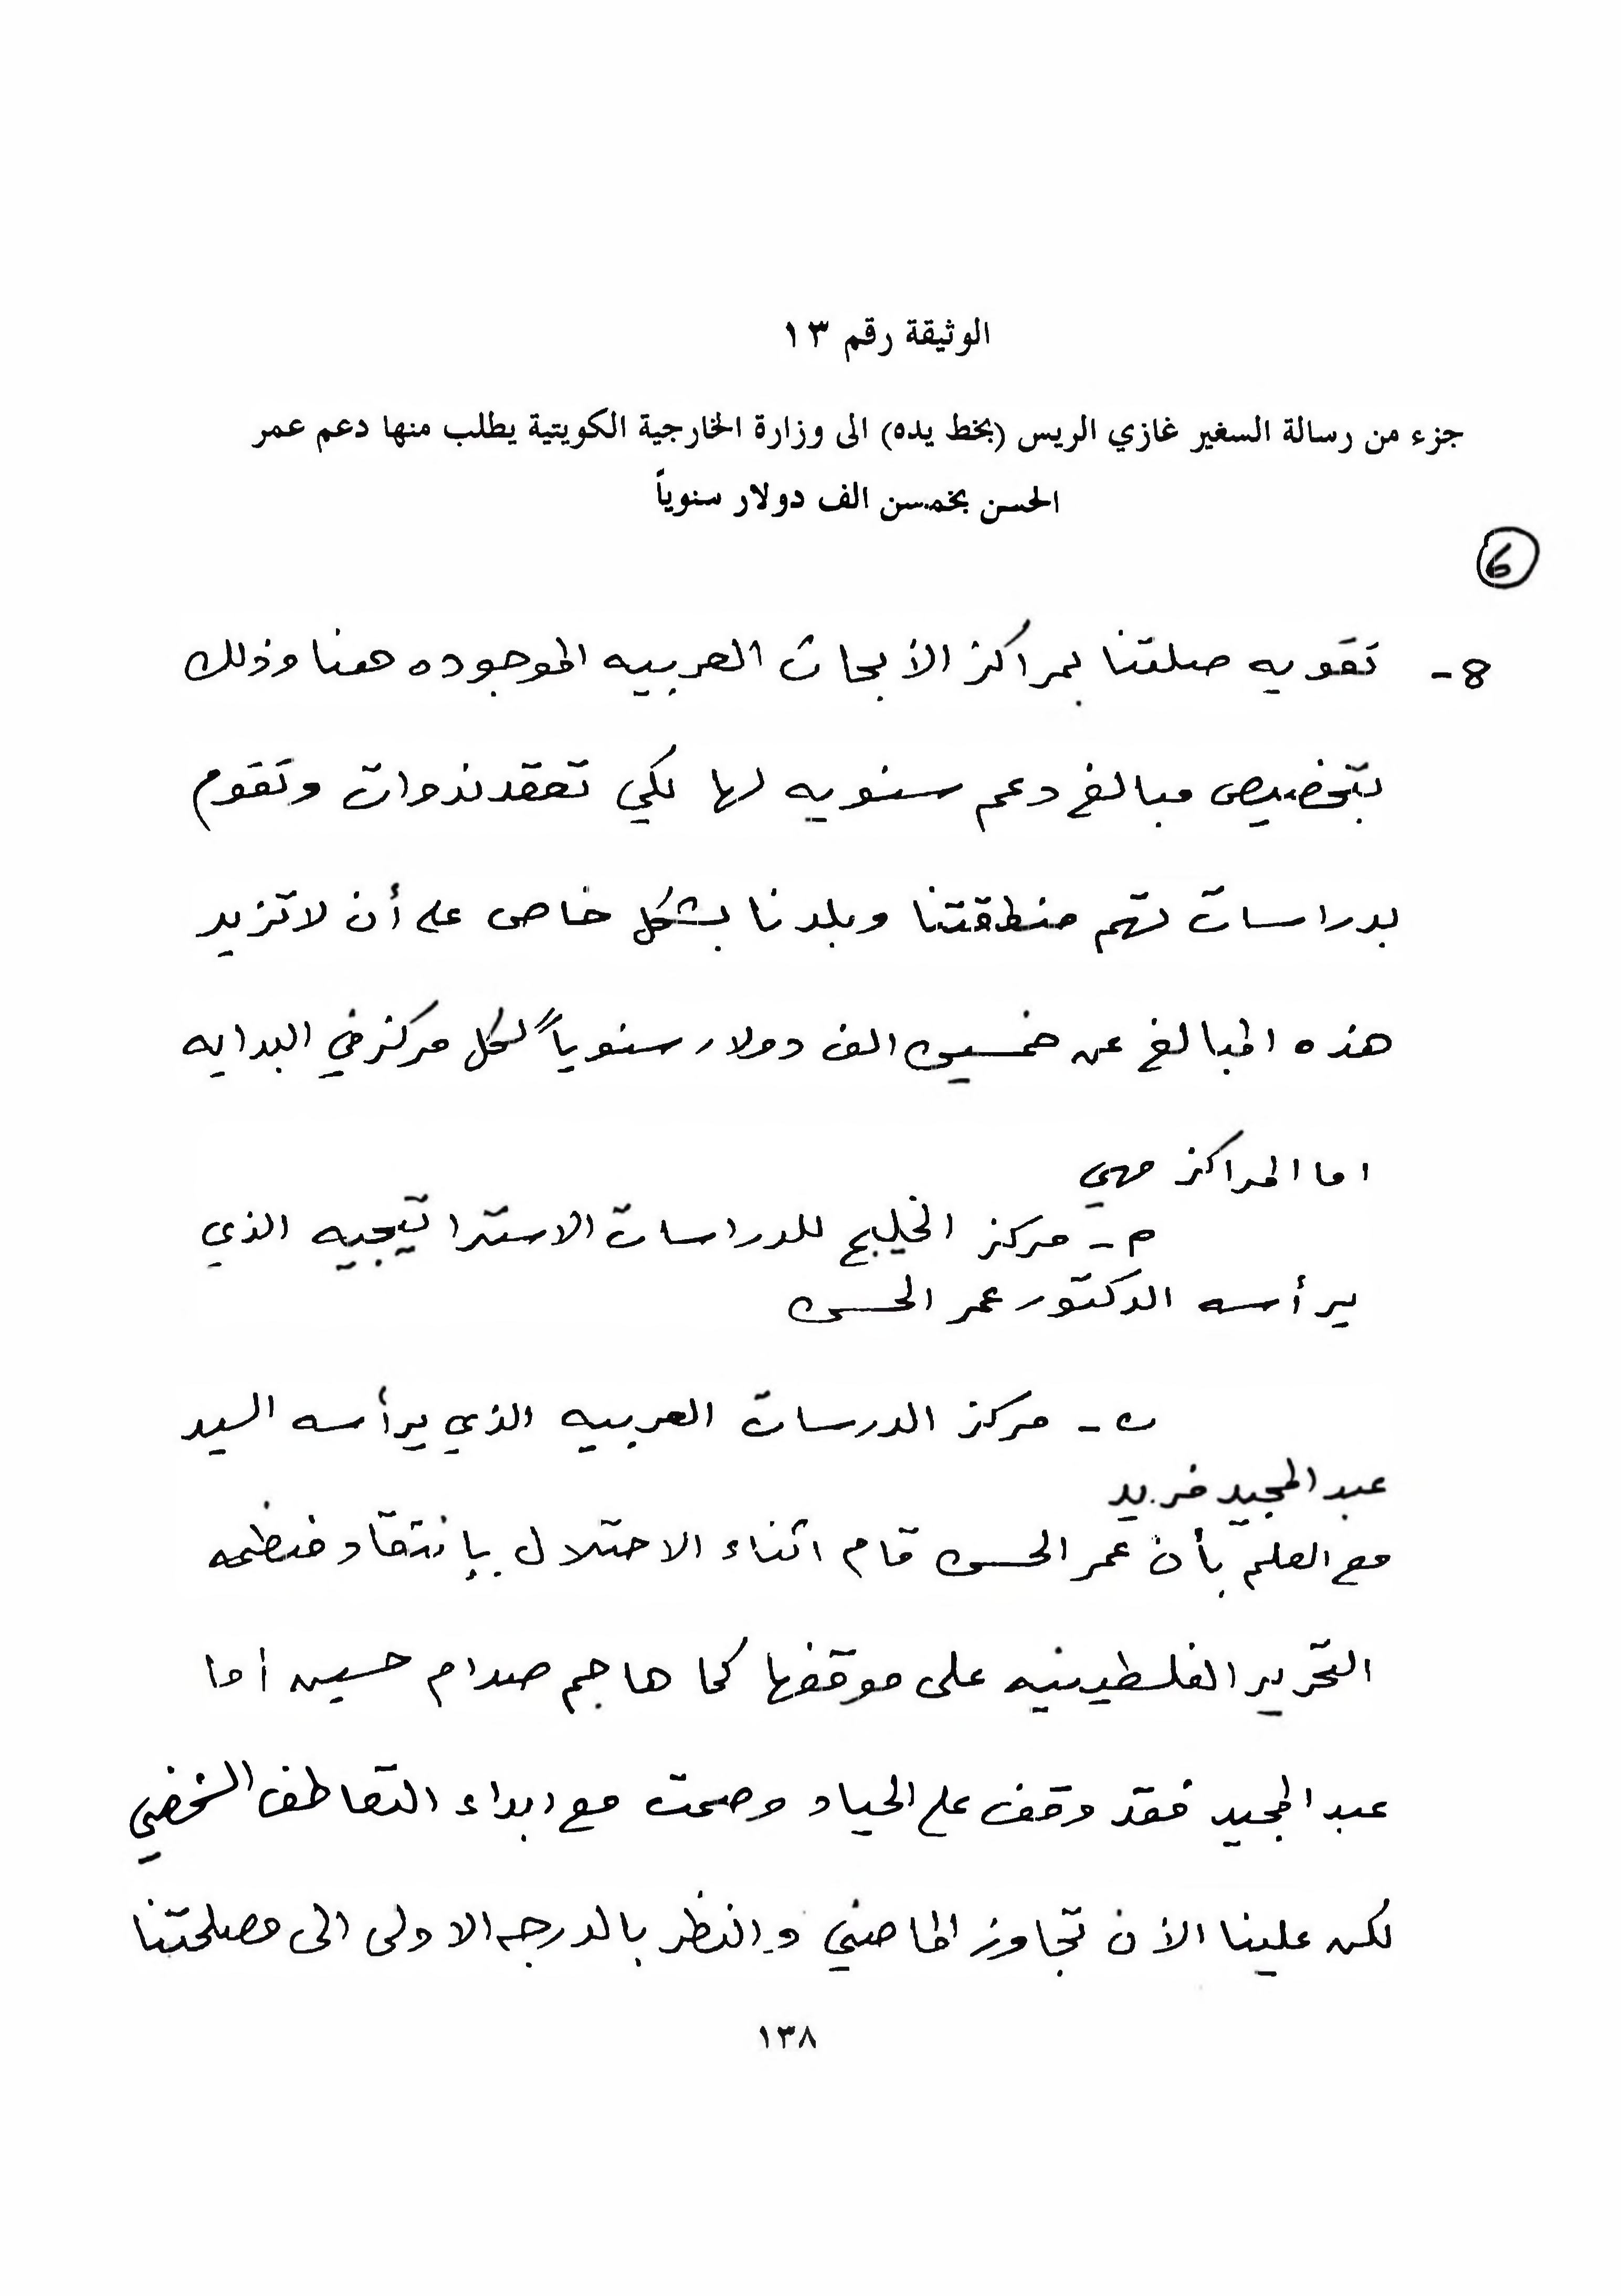 الوثيقة رقم ١٣
جزء من رسالة السفير غازي الريس (بخط يده) الى وزارة الخارجية الكويتية يطلب منها دعم عمر
الحسن بخمسن الف دولار سنوياً
6
8- تقويه صلتنا بمراكز الأبحاث العربيه الموجوده هنا وذلك
بتخصيص مبالغ دعم سنويه لها لكي تعقد ندوات وتقوم
بدراسات تهم منطقتنا وبلدنا بشكل خاص على أن لا تزيد
هذه المبالغ عن خمسين الف دولار سنوياً لكل مركز في البدايه
اما المراكز فهي
م - مركز الخليج للدراسات الاستراتيجيه الذي
يرأسه الدكتور عمر الحسن
ب - مركز الدرسات العربيه الذي يرأسه السيد
عبد المجيد فريد
مع العلم بأن عمر الحسن قام اثناء الاحتلال بإنتقاد منظمه
التحرير الفلسطينيه على موقفها كما هاجم صدام حسين أما
عبد المجيد فقد وقف على الحياد وصمت مع ابداء التعاطف الشخصي
لكن علينا الأن تجاوز الماضي والنظر بالدرجه الاولى الى مصلحتنا
١٣٨